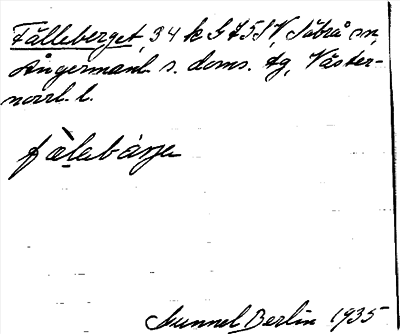 Fälleberget, 34 k G 75 SV, Säbrå sn,
Ångermanl. s. doms. tg, Väster-
norrl. l.
fàlebárje
Gunnel Berlin 1935